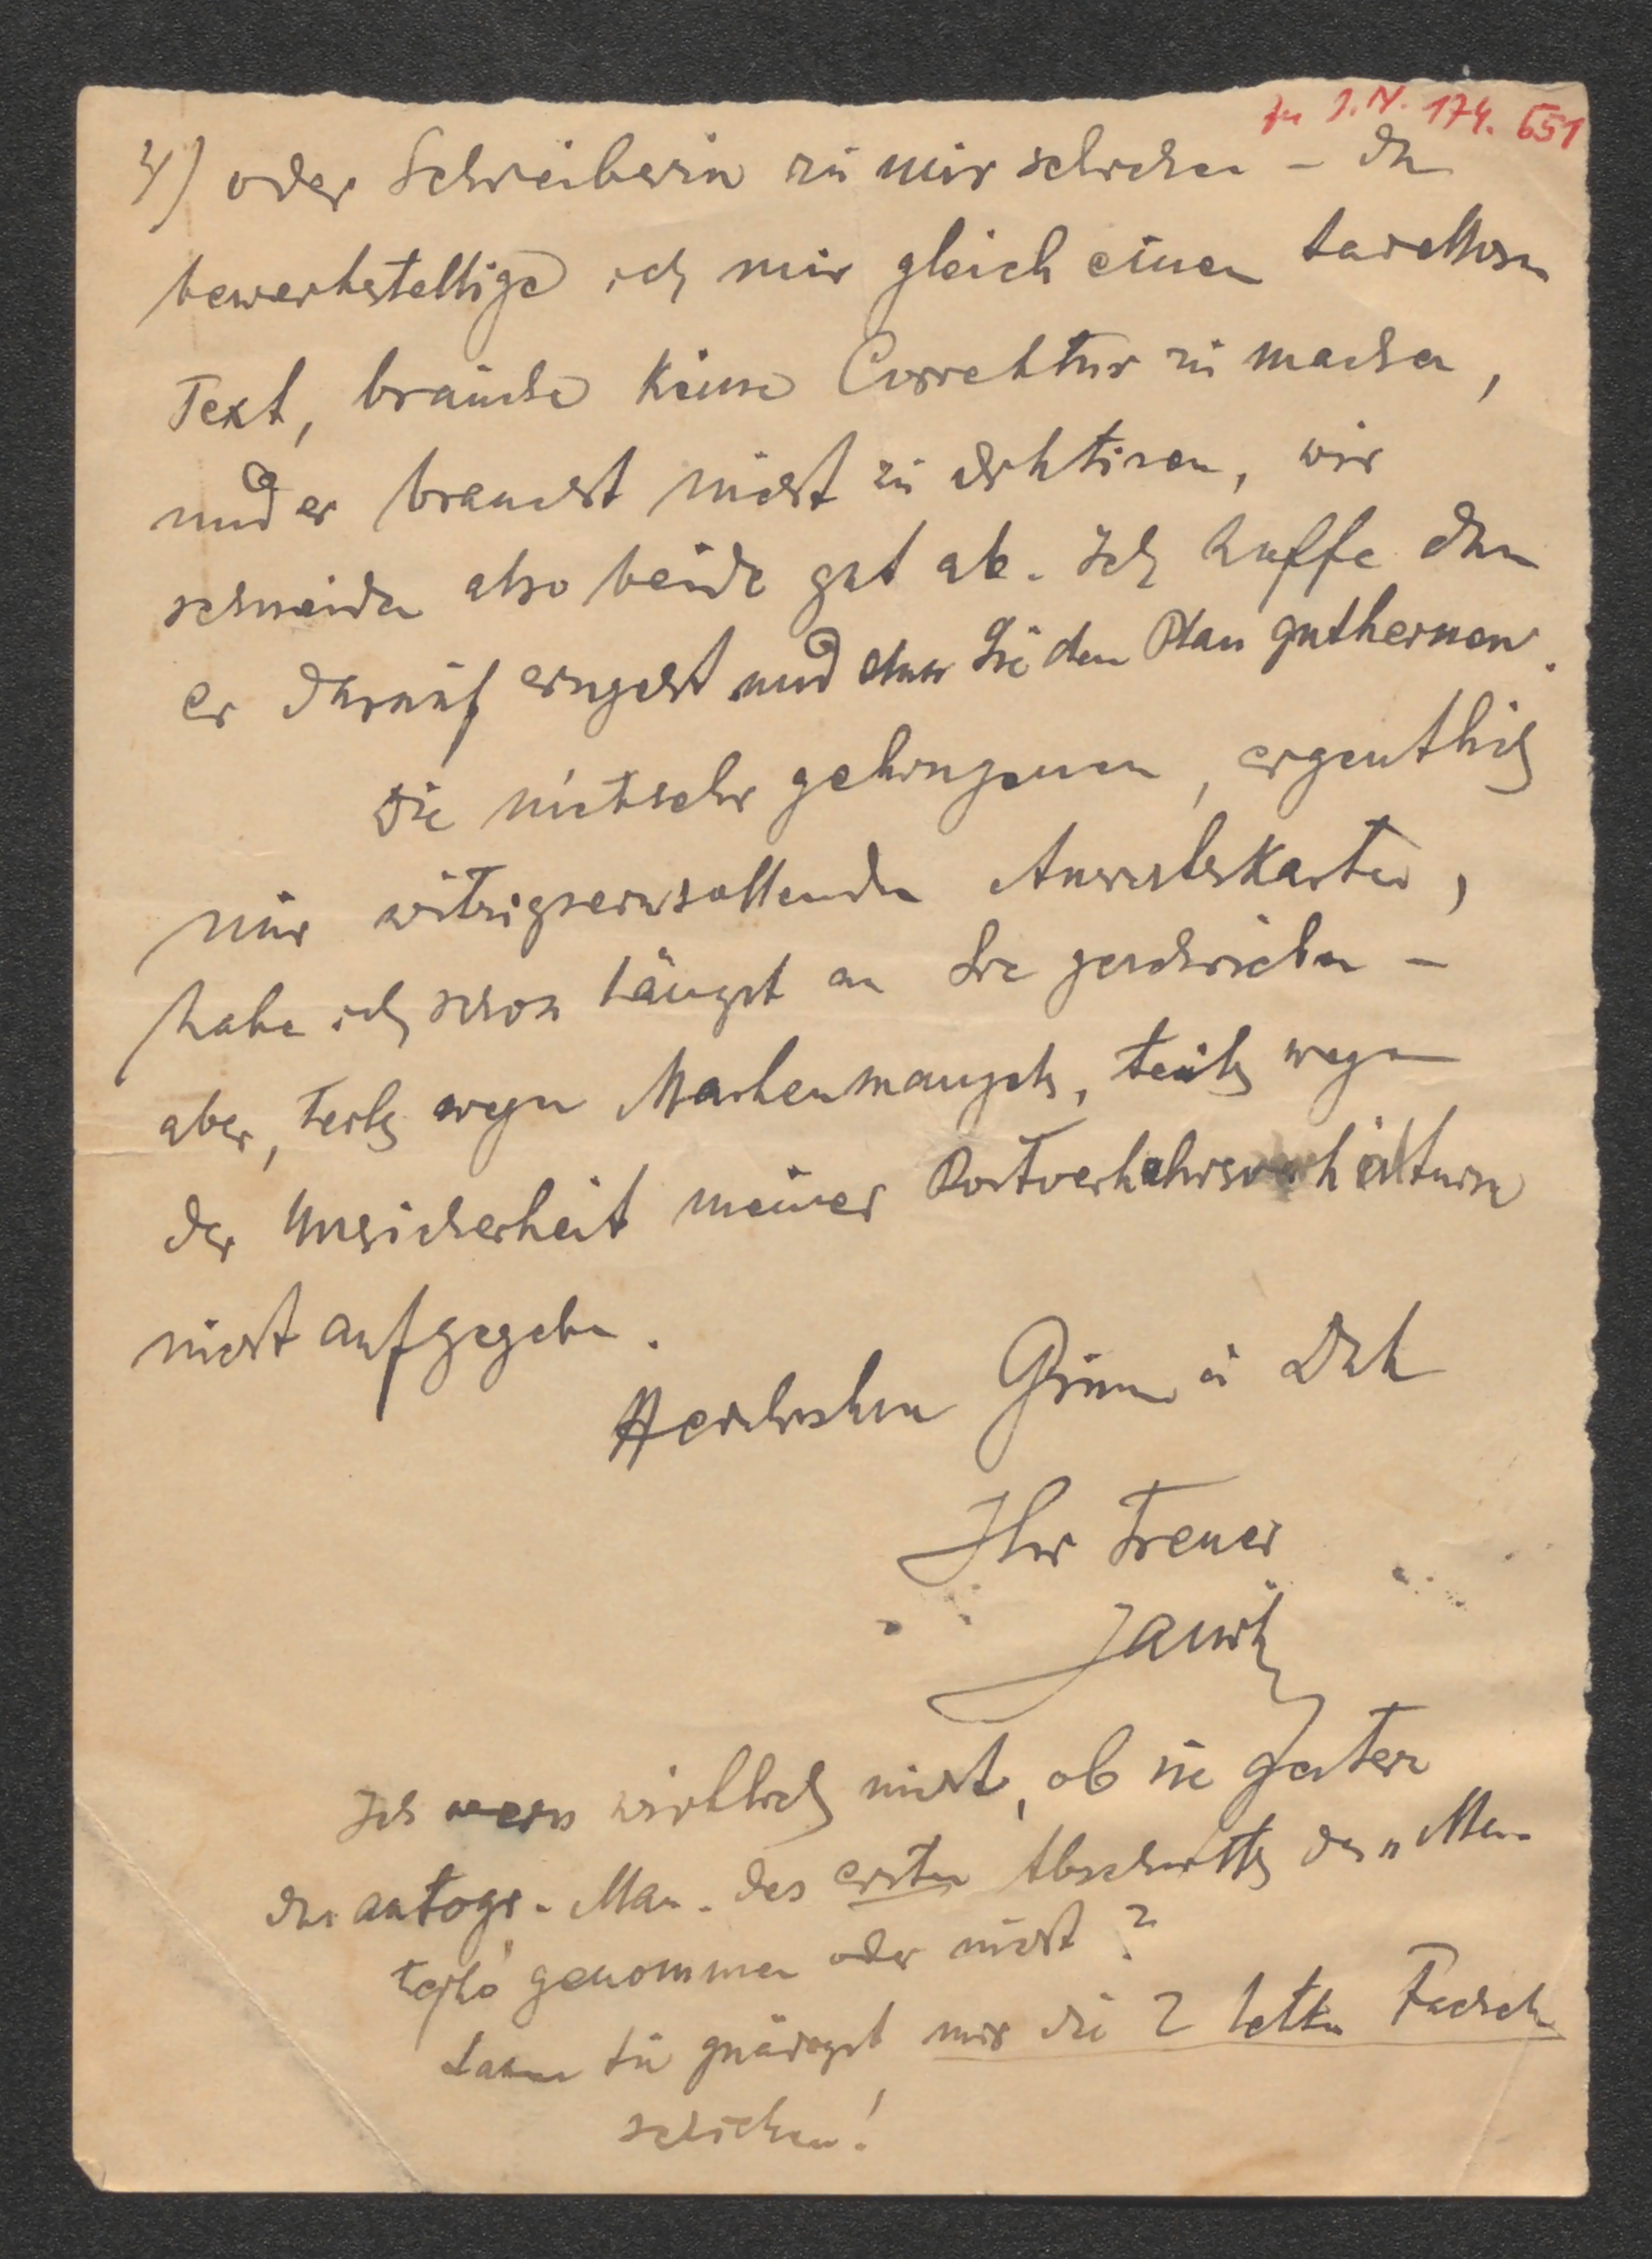 zu I.N. 174.651
4) oder Schreiberin zu mir schicken – da
bewerkstellige ich mir gleich einen tadellosen
Text, brauche keine Correktur zu machen,
und er braucht nicht zu diktiren, wir
schneiden also beide gut ab. Ich hoffe dass
er darauf eingeht und dass Sie den Plan gutheissen.
Die nicht sehr gelungenen, eigentlich
nur witzigseinsollenden Ansichtskarten,
habe ich schon längst an Sie geschrieben –
aber, teils wegen Markenmangels, teils wegen
der Unsicherheit meiner Postverkehrsverhältnisse
nicht aufgegeben.
Herzlichsten Gruss u Dank
Ihr Treuer
Ich weiss wirklich nicht, ob sie gestern
das autogr. Man. des ersten Abschnitts des „
genommen oder nicht?
Lassen Sie gnädigst mir die 2 letzten
schicken!